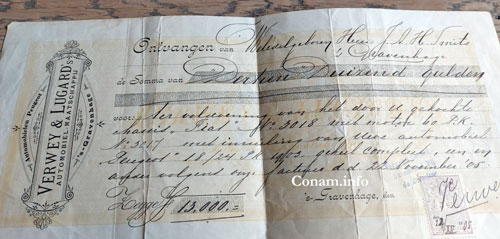 Automobielen Peugeot
VERWEY & LUGARD'S
AUTOMOBIEL-MAATSCHAPPIJ
's-Gravenhage
Ontvangen van Weledelgeboren Heer J. A. H. Smits
's Gravenhage
de Somma van Dertien Duizend Gulden
voor: ter voldoening van het door U gekochte
chassis "Fiat" No. 3018 met motor 60 P.K.
No. 3217 met inruiling van Uwe automobiel
Peugeot 18/24 P.K. 1903 geheel compleet, een en
ander volgens onze facture d.d. 22 November '05
Conam.info
Zegge f 13.000,=
's-Gravenhage, den